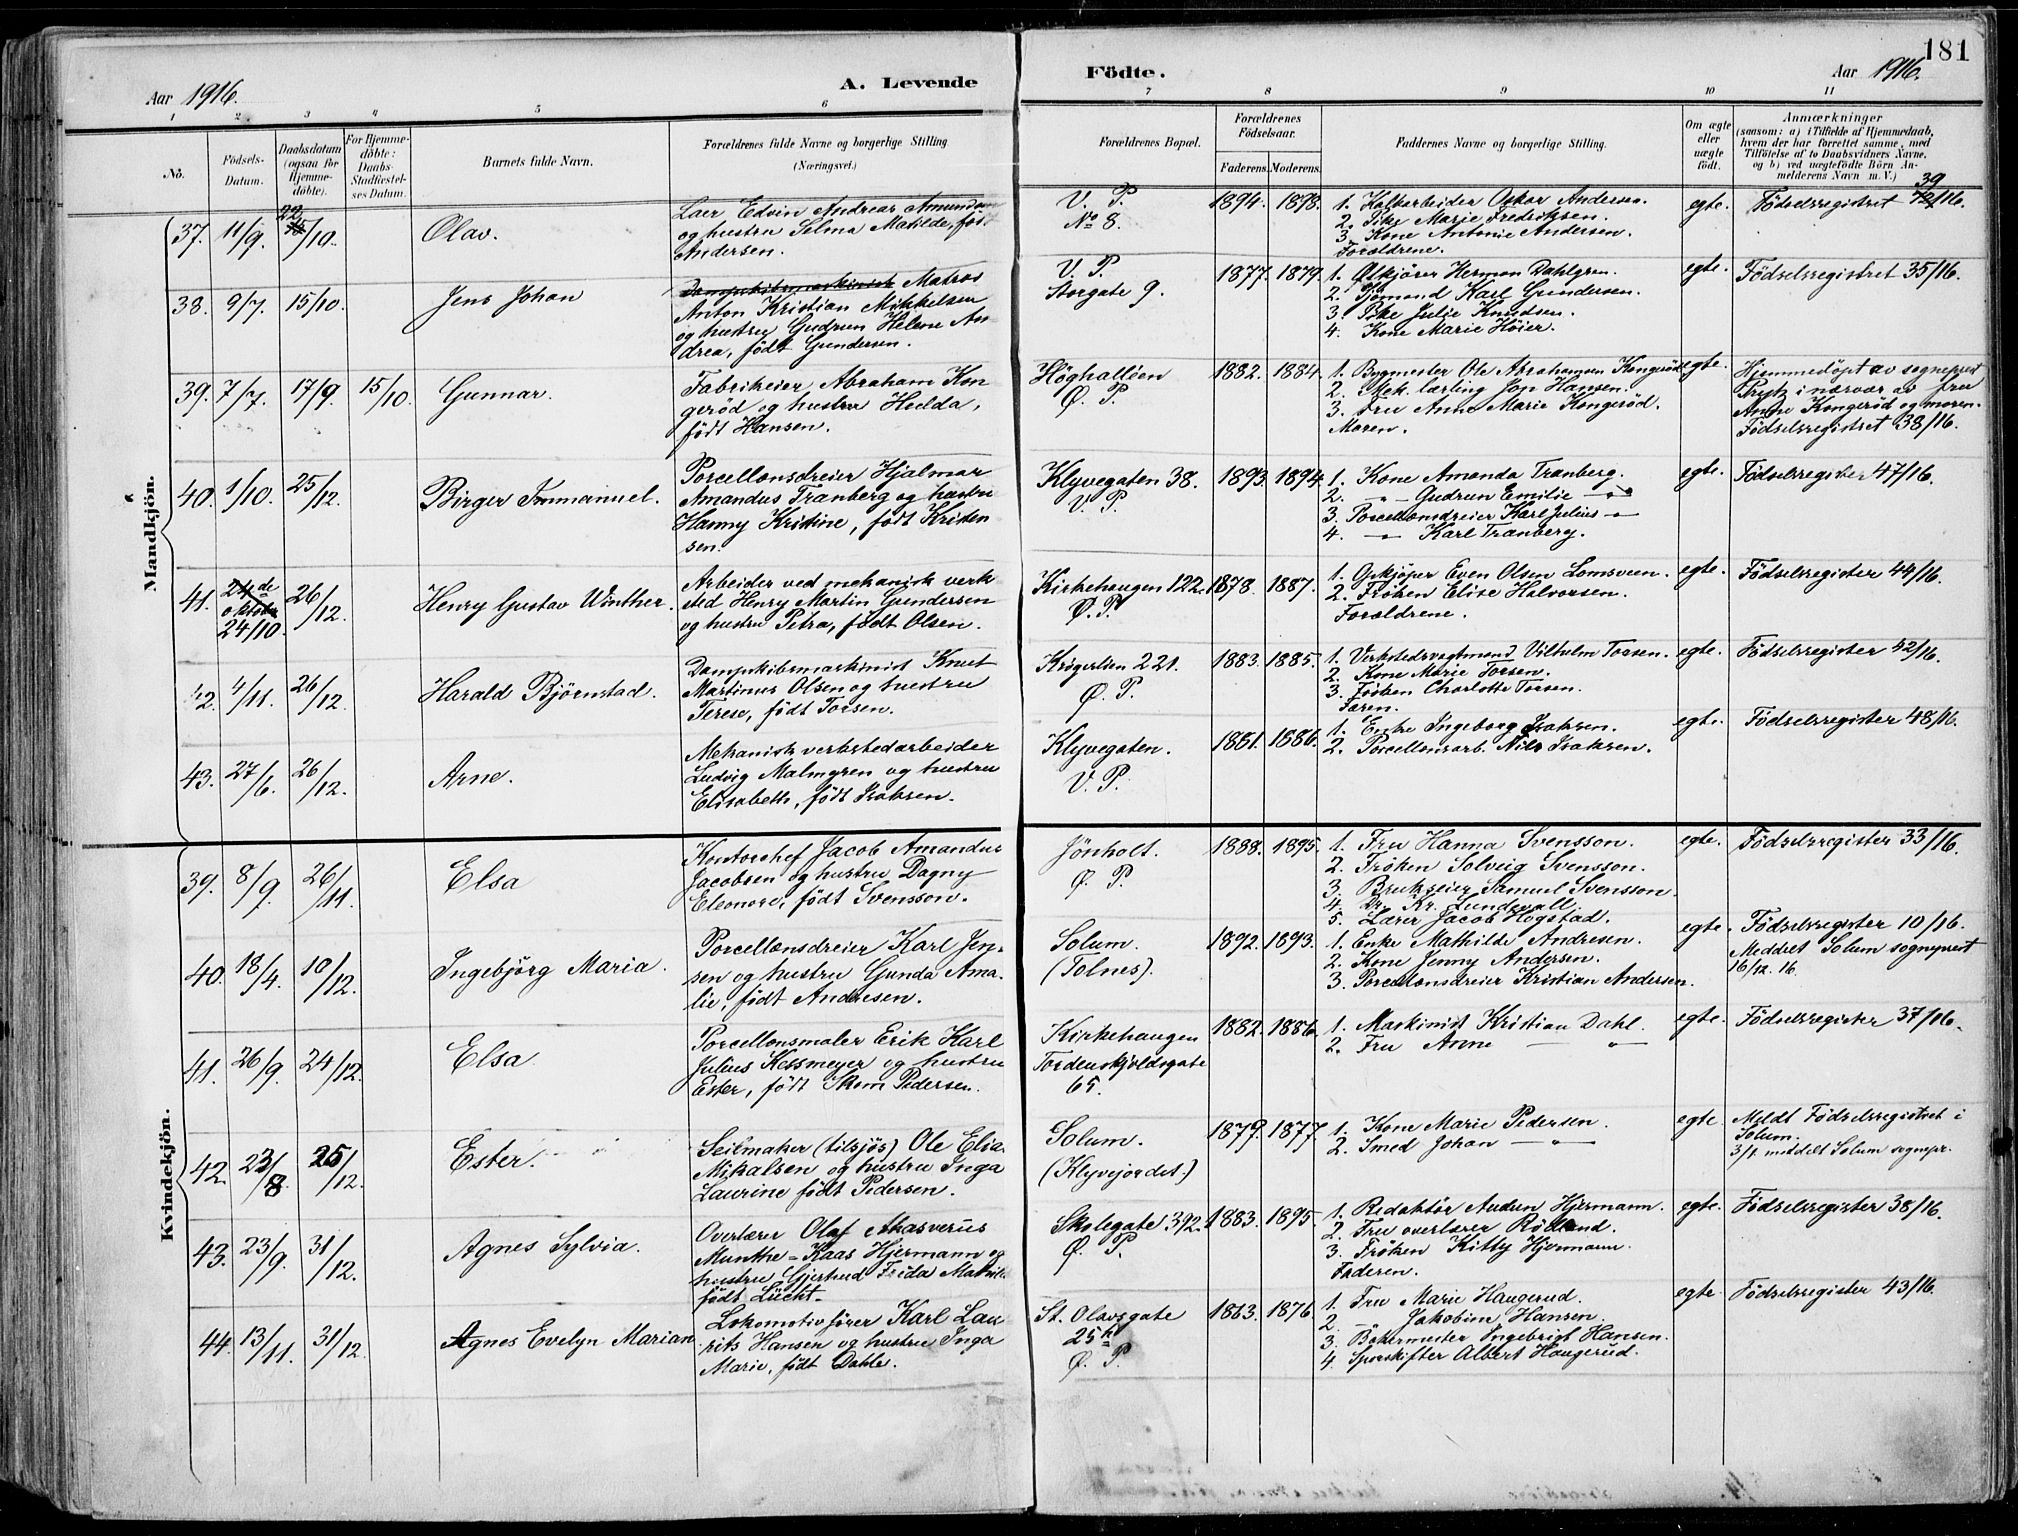 181
Aar 1916.
A. Levende
Födte.
Aar 1916.
1 2 3 4 5 6 7 8 9 10 11
No.
Födsels-
Datum.
Daabsdatum
(ogsaa for
Hjemme-
döbte).
For Hjemme-
döbte:
Daabs-
Stadfæstel-
ses Datum.
Barnets fulde Navn.
Forældrenes fulde Navne og borgerlige Stilling
(Næringsvei.)
Forældrenes Bopæl.
Forældrenes
Födselsaar.
Faderens.
Moderens.
Faddernes Navne og borgerlige Stilling.
Om ægte
eller
uægte
födt.
Anmærkninger
(saasom: a) i Tilfælde af Hjemmedaab,
hvem der har forrettet samme, med
Tilföielse af to Daabsvidners Navne,
og b) ved uægtefödte Börn An-
melderens Navn m. V.)
Mandkjön.
37. 11/9. 22/10. Olav.
Edvin Andreas Amundsen
og hustru Selma Matilde, föd.
Andersen.
V. P.
No 8.
1894. 1898.
1. Kalkarbeider Oskar Andersen.
2. Pike Marie Fredriksen.
3. Kone Antonie Andersen.
Foraldrene.
egte.
Födselsregistret 39/16.
38. 9/7. 15/10. Jens Johan
Dampskibsmaskinist Matros
Anton Kristian Mikkelsen
og hustru Gudrun Helene An
drea, födt Gundersen.
V. P.
Storgate 9.
1877. 1879.
1. Opkjöper Herman Dahlgren.
2. Sjömand Karl Gundersen.
3. Pike Julie Knudsen.
4. Kone Marie Höier.
egte.
Födselsregistret 35/16.
39. 7/7. 17/9. 15/10. Gunnar.
Fabrikeier Abraham Kon
geröd og hustru Hulda,
födt Hansen.
Höghalléen
Ø. P.
1882. 1884.
1. Bygmester Ole Abrahamsen Kongeröd
2. Mek. lærling Jon Hansen.
3. Fru Anne Marie Kongeröd.
Moren.
egte.
Hjemmedöpt av sogneprest
Prytz i nærvær av fru
Anne Kongeröd og moren.
Födselsregistret 38/16.
40. 1/10. 25/12. Birger Immanuel.
Porcellænsdreier Hjalmar
Amandus Tranberg og hustru
Hanny Kristine, födt Kristen
sen.
Klyvegaten 38.
V. P.
1893. 1894.
1. Kone Amanda Tranberg.
2. -"- Gudrun Emilie -"-
3. Porcellænsdreier Karl Julius -"-
4. -"- Karl Tranberg.
egte.
Födselsregister 47/16.
41. 24de
oktober
24/10. 26/12. Henry Gustav Winther.
Arbeider ved mekanisk verk
sted Henry Martin Gundersen
og hustru Petra, födt Olsen.
Kirkehaugen 122.
Ø. P.
1878. 1887.
1. Opkjöper Even Olsen Lomsveen.
2. Fröken Elise Halvorsen.
Foraldrene.
egte.
Födselsregister 44/16.
42. 4/11. 26/12. Harald Björnstad.
Dampskibsmaskinist Knut
Martinus Olsen og hustru
Terese, födt Torsen.
Krigerlien 221.
Ø. P.
1883. 1885.
1. Verkstedsvegtmand Vilhelm Torsen.
2. Kone Marie Torsen.
3. Fröken Charlotte Torsen.
Faren.
egte.
Födselsregister 42/16.
43. 27/6. 26/12. Arne.
Mekanisk verkstedarbeider
Ludvig Malmgren og hustru
Elisabeth, födt Isaksen.
Klyvegaten.
V. P.
1881. 1886.
1. Enke Ingeborg Isaksen.
2. Porcellænsarb. Nils Isaksen.
egte.
Födselsregister 48/16.
Kvindekjön.
39. 8/9. 26/11. Elsa
Kontorchef Jacob Amandus
Jacobsen og hustru Dagny
Eleonore, födt Svensson.
Jönholt.
Ø. P.
1888. 1895.
1. Fru Hanna Svensson.
2. Fröken Solveig Svensson.
3. Brukseier Samuel Svensson.
4. Dr. Kr. Lundevall.
5. Lærer Jacob Högstad.
egte.
Födselsregister 33/16.
40. 18/4. 10/12. Ingebjörg Maria.
Porcellænsdreier Karl Jen-
sen og hustru Gunda Ama-
lie, födt Andresen.
Solum.
(Tolnes).
1892. 1893.
1. Enke Mathilde Andresen.
2. Kone Jenny Andersen.
3. Porcellænsdreier Kristian Andersen.
egte.
Födselsregister 10/16.
Meddelt Solum sogneprest
16/12. 16.
41. 26/9. 24/12. Elsa
Porcellænsmaler Erik Karl
Julius Kessmeyer og hustru
Ester, födt Skom Pedersen.
Kirkehaugen
Tordenskjoldsgate
65.
1882. 1886.
1. Maskinist Kristian Dahl.
2. Fru Anne — "
egte.
Födselsregister 37/16.
42. 23/8. 25/12. Ester.
Seilmaker (tilsjös) Ole Elias
Mikalsen og hustru Inga
Laurine födt Pedersen.
Solum.
(Klyvejordet.)
1879. 1877.
1. Kone Marie Pedersen.
2. Smed Johan -"-
egte
Meldt Födselsregistret i
Solum.
3/1. meddelt Solum sognepr.
43. 23/9. 31/12. Agnes Sylvia.
Overlærer Olaf Ahasverus
Munthe-Kaas Hjermann og
hustru Gjertrud Frida Mathil
födt Lücht.
Skolegate 392.
Ø. P.
1883. 1895.
1. Redaktör Audun Hjermann.
2. Fru overlærer Rödland.
3. Fröken Kitty Hjermann.
Faderen.
egte.
Födselsregister 38/16.
44. 13/11. 31/12. Agnes Evelyn Marian.
Lokomotivförer Karl Lau
rits Hansen og hustru Inga
Marie, födt Dahle.
St. Olavsgate
25
Ø. P
1863. 1876.
1. Fru Marie Haugerud.
2. — Jakobine Hansen.
3. Bakermester Ingebrigt Hansen.
4. Sporskifter Albert Haugerud.
egte.
Födselsregister 43/16.